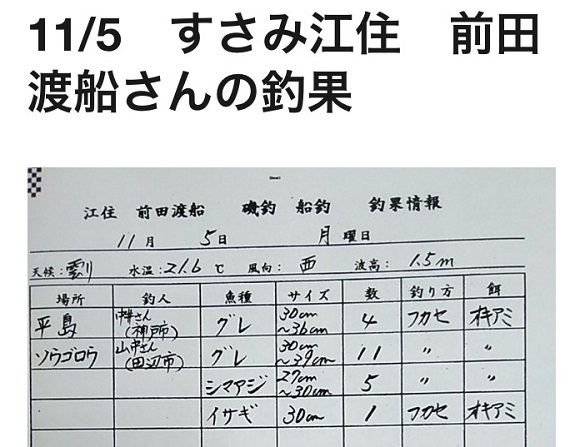 11/5　すさみ江住　前田
渡船さんの釣果
江住　前田渡船　磯釣　船釣　釣果情報
11月　5日　月曜日
天候：　水温：21.6℃　風向：西　波高：1.5m
場所　釣人　魚種　サイズ　数　釣り方　餌
平島　さん（神戸市）　グレ　30cm～36cm　4　フカセ　オキアミ
ソウゴロウ　山中さん（田辺市）　グレ　30cm～39cm　11　〃　〃
シマアジ　27cm～30cm　5　〃　〃
イサギ　30cm　1　フカセ　オキアミ